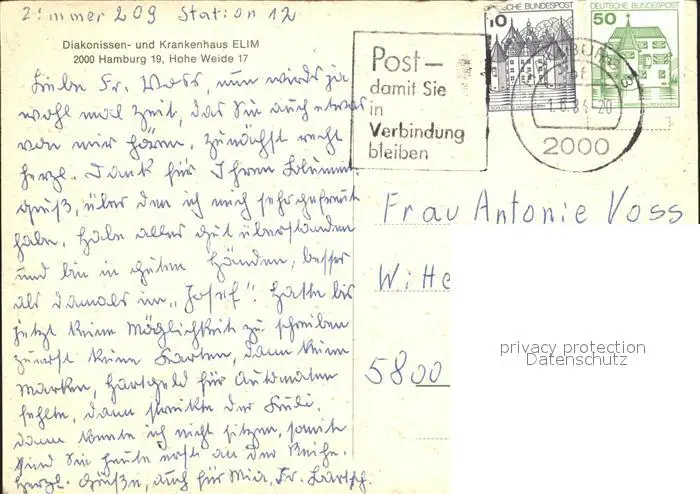 Zimmer 209 Station 12
Diakonissen- und Krankenhaus ELIM
2000 Hamburg 19, Hohe Weide 17
Liebe Fr. Voss, nun wird's ja
wohl mal Zeit, das Sie auch etwas
von mir hören. Zunächst recht
herzl. Dank für Ihren Blumen-
gruß, über den ich mich sehr gefreut
habe. Habe alles gut überstanden
und bin in guten Händen, besser
als damals im „Josef". Hatte bis
jetzt keine Möglichkeit zu schreiben
zuerst keine Karten, dann keine
Marken, Hartgeld für Automaten
fehlte, dann streikte der Kuli.
dann konnte ich nicht sitzen, somit
sind Sie heute erst an der Reihe.
Herzl. Grüße, auch für Mia, Fr.
Post –
damit Sie
in
Verbindung
bleiben
DEUTSCHE BUNDESPOST
10
DEUTSCHE BUNDESPOST
50
2000
Frau Antonie Voss
Witte
5800
privacy protection
Datenschutz